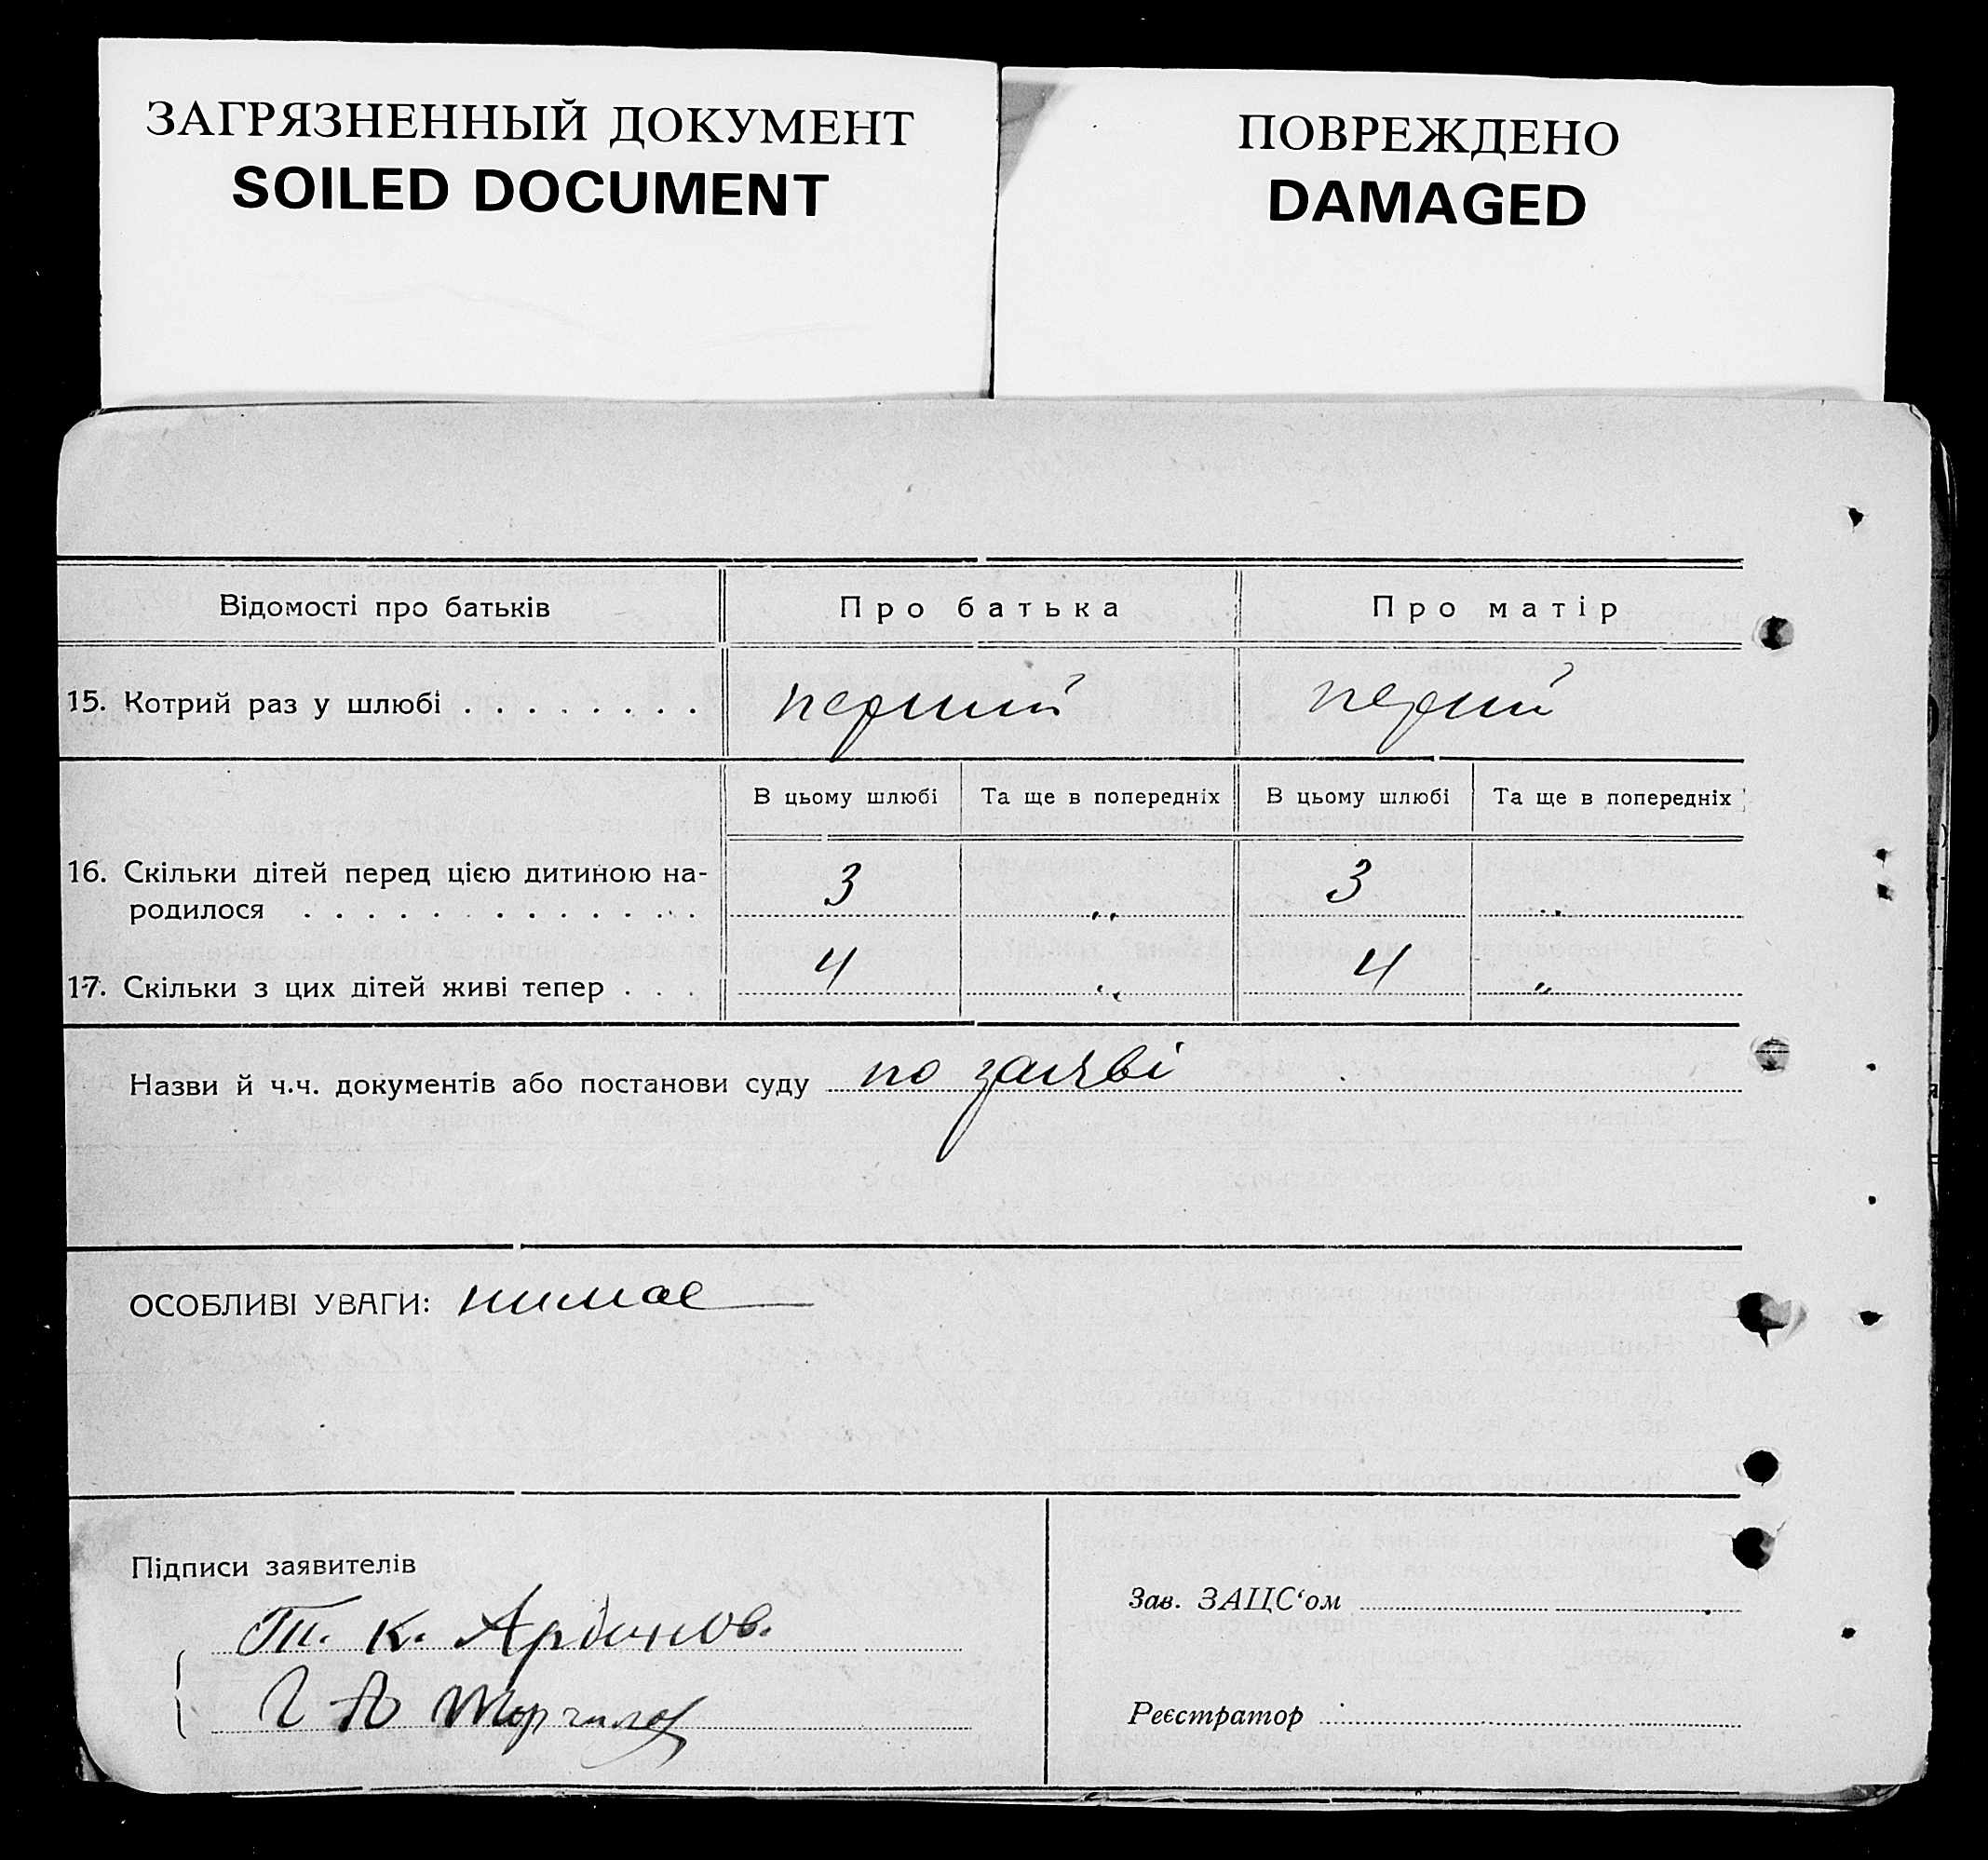 ЗАГРЯЗНЕННЫЙ ДОКУМЕНТ
SOILED DOCUMENT
ПОВРЕЖДЕНО
DAMAGED
Відомості про батьків Про батька Про матір
15. Котрий раз у шлюбі . . . . . . . . перший перший
В цьому шлюбі Та ще в попередніх В цьому шлюбі Та ще в попередніх
16. Скільки дітей перед цією дитиною на-
родилося . . . . . . . . . . . . . . 3 „ 3 „
17. Скільки з цих дітей живі тепер . . . 4 „ 4 „
Назви й ч.ч. документів або постанови суду по заяві
ОСОБЛИВІ УВАГИ: нимае
Підписи заявителів
К.
Зав. ЗАЦС‘ом
Реєстратор